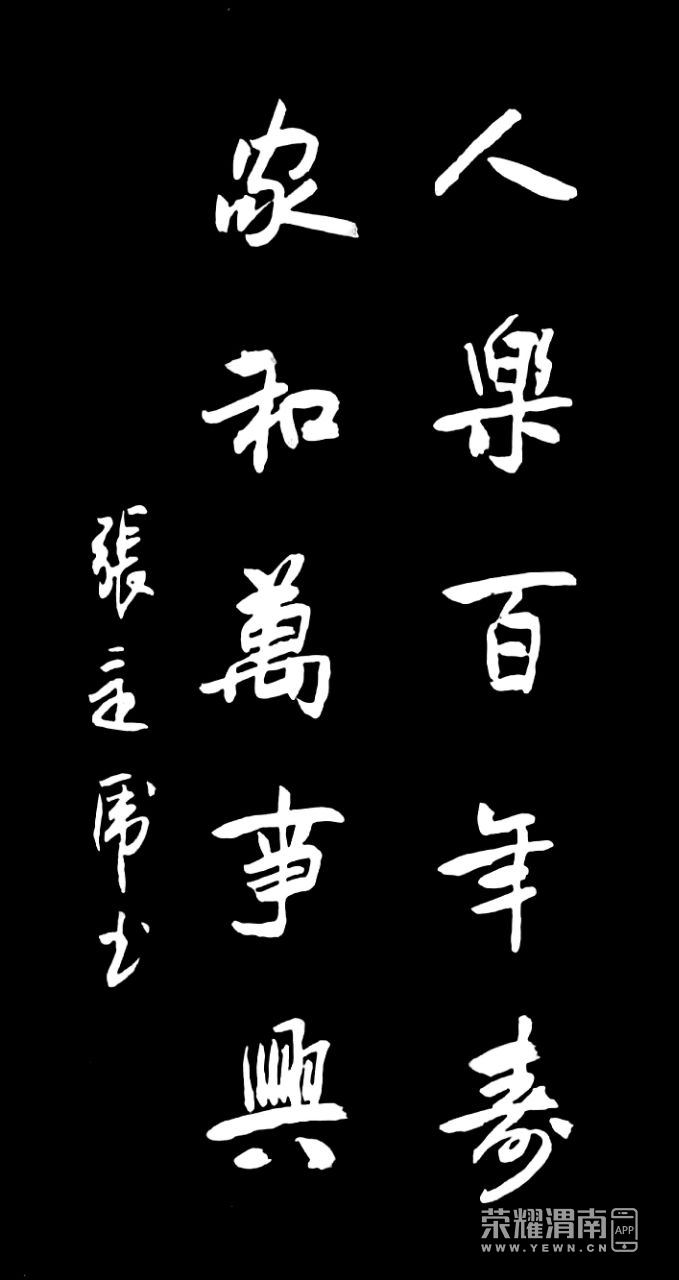 人樂百年寿
家和萬事興
張立席书
荣耀渭南 APP
WWW.YEWN.CN